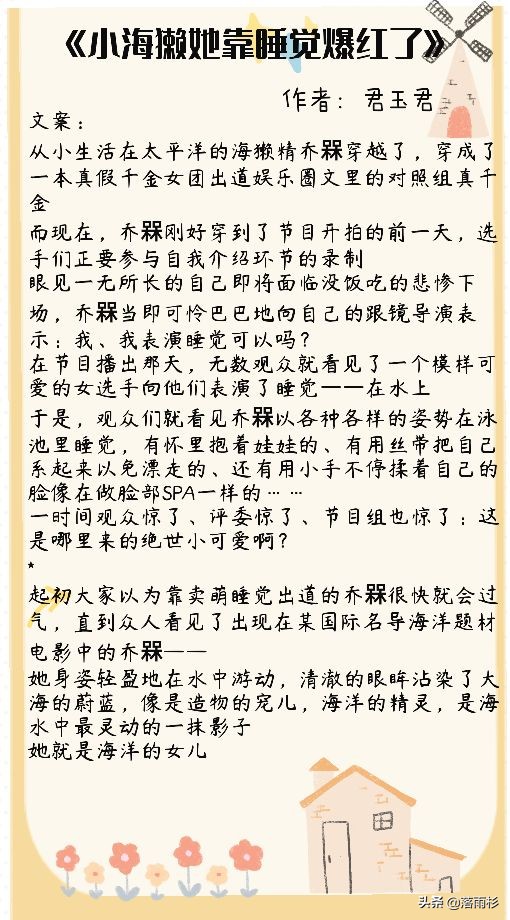 《小海獭她靠睡觉爆红了》
作者：君玉君
文案：
从小生活在太平洋的海獭精乔槑穿越了，穿成了
一本真假千金女团出道娱乐圈文里的对照组真千
金
而现在，乔槑刚好穿到了节目开拍的前一天，选
手们正要参与自我介绍环节的录制
眼见一无所长的自己即将面临没饭吃的悲惨下
场，乔槑当即可怜巴巴地向自己的跟镜导演表
示：我、我表演睡觉可以吗？
在节目播出那天，无数观众就看见了一个模样可
爱的女选手向他们表演了睡觉——在水上
于是，观众们就看见乔槑以各种各样的姿势在泳
池里睡觉，有怀里抱着娃娃的、有用丝带把自己
系起来以免漂走的、还有用小手不停揉着自己的
脸像在做脸部SPA一样的……
一时间观众惊了、评委惊了、节目组也惊了：这
是哪里来的绝世小可爱啊？
*
起初大家以为靠卖萌睡觉出道的乔槑很快就会过
气，直到众人看见了出现在某国际名导海洋题材
电影中的乔槑——
她身姿轻盈地在水中游动，清澈的眼眸沾染了大
海的蔚蓝，像是造物的宠儿，海洋的精灵，是海
水中最灵动的一抹影子
她就是海洋的女儿
头条 @落雨杉